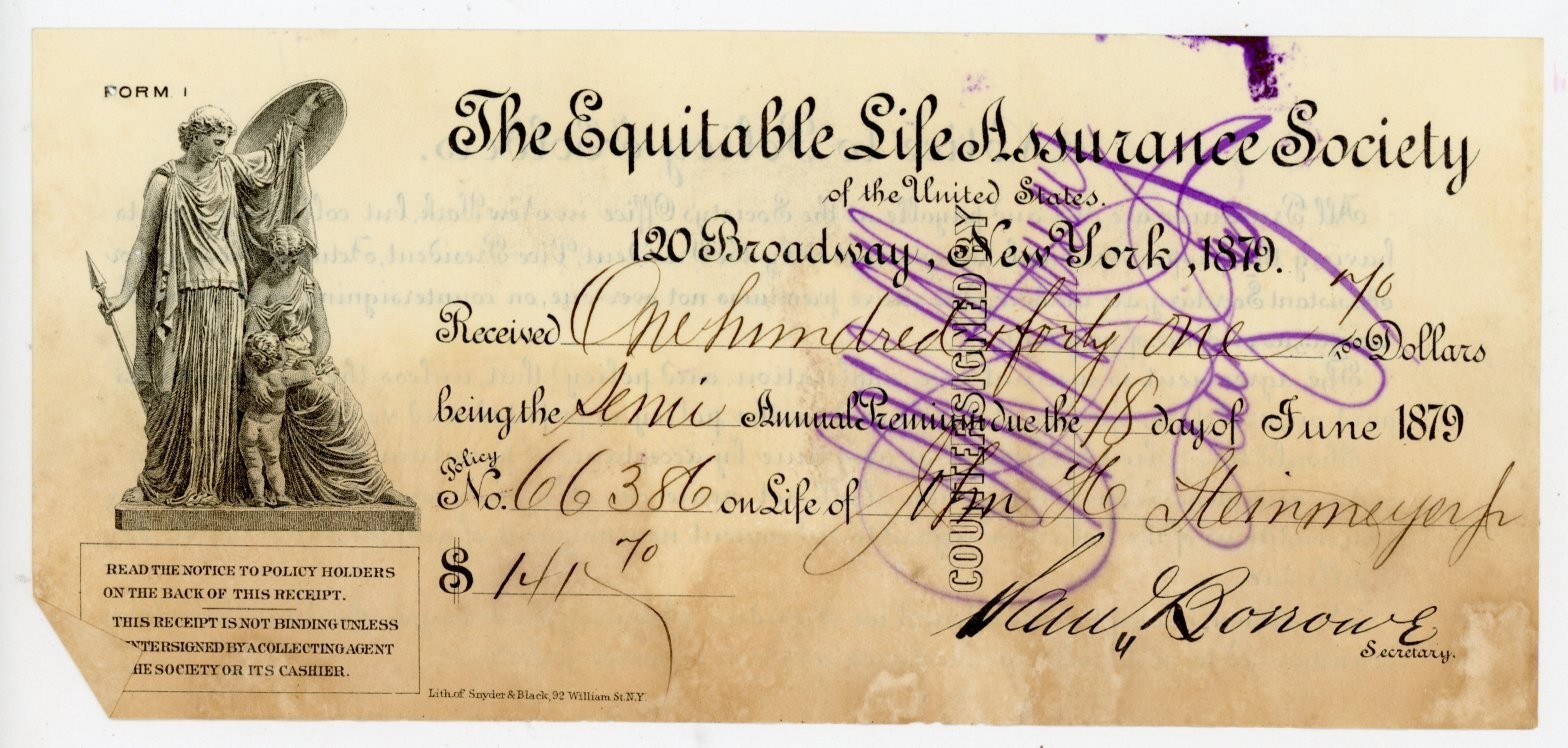 FORM 1
The Equitable Life Assurance Society
of the United States.
120 Broadway, New York, 1879.
Received One hundred & forty one 70/100 Dollars
being the Semi Annual Premium due the 18 day of June 1879
Policy No. 66386 on Life of John H Steinmeyer Jr
$ 141 70
Sam'l Borrowe
Secretary.
COUNTERSIGNED BY
READ THE NOTICE TO POLICY HOLDERS
ON THE BACK OF THIS RECEIPT.
THIS RECEIPT IS NOT BINDING UNLESS
NTERSIGNED BY A COLLECTING AGENT
HE SOCIETY OR ITS CASHIER.
Lith. of Snyder & Black, 92 William St. N.Y.